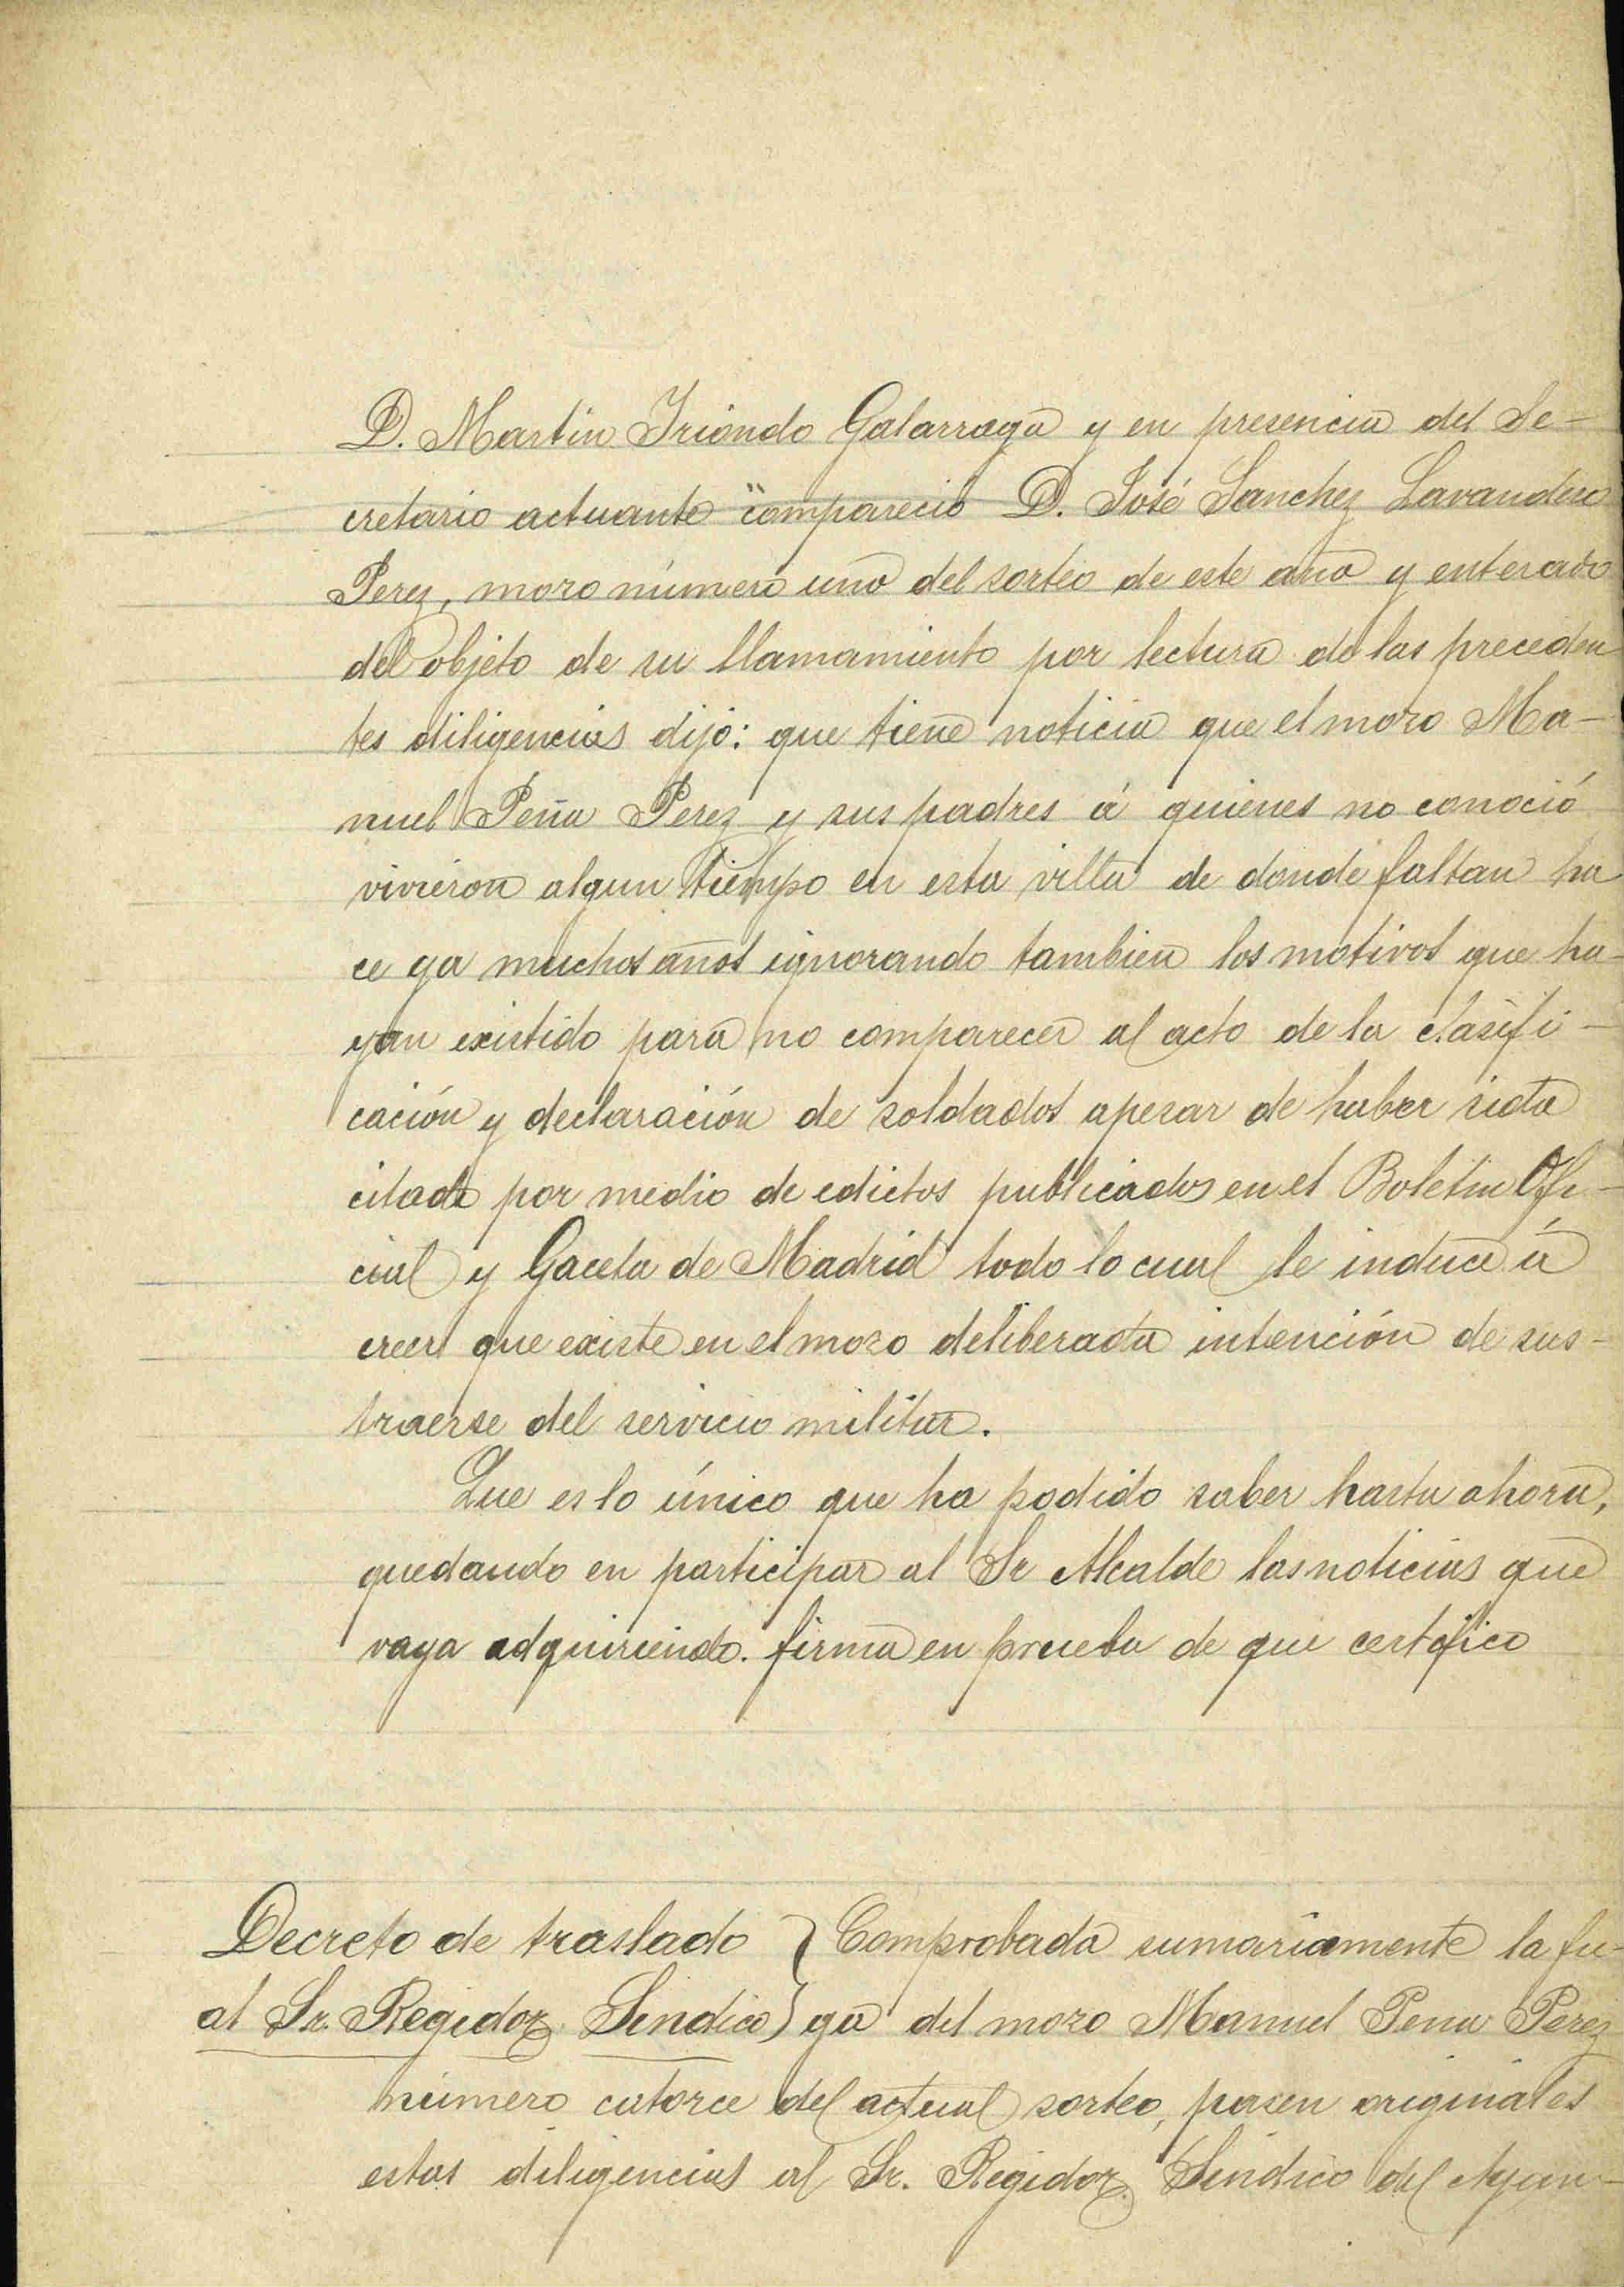 D. Martin Iriondo Galarraga y en presencia del Se-
cretario actuante "compareció D. José Sanchez Lavandero
Perez, mozo número uno del sorteo de este año y enterado
del objeto de su llamamiento por lectura de las preceden
tes diligencias dijo: que tiene noticia que el mozo Ma-
nuel Peña Perez y sus padres á quienes no conoció
vivieron algun tiempo en esta villa de donde faltan ha
ce ya muchos años ignorando tambien los motivos que ha-
yan existido para no comparecer al acto de la clasifi-
cación y declaración de soldados apesar de haber sido
citado por medio de edictos publicados en el Boletin Ofi-
cial y Gaceta de Madrid todo lo cual le induce á
creer que existe en el mozo deliberada intención de sus-
traerse del servicio militar.
Que es lo único que ha podido saber hasta ahora,
quedando en participar al Sr Alcalde las noticias que
vaya adquiriendo. firma en prueba de que certifico
Decreto de traslado } Comprobada sumariamente la fu-
al Sr. Regidor Sindico } ga del mozo Manuel Pena Perez
número catorce del actual sorteo, pasen originales
estas diligencias al Sr. Regidor Sindico del Ayun-